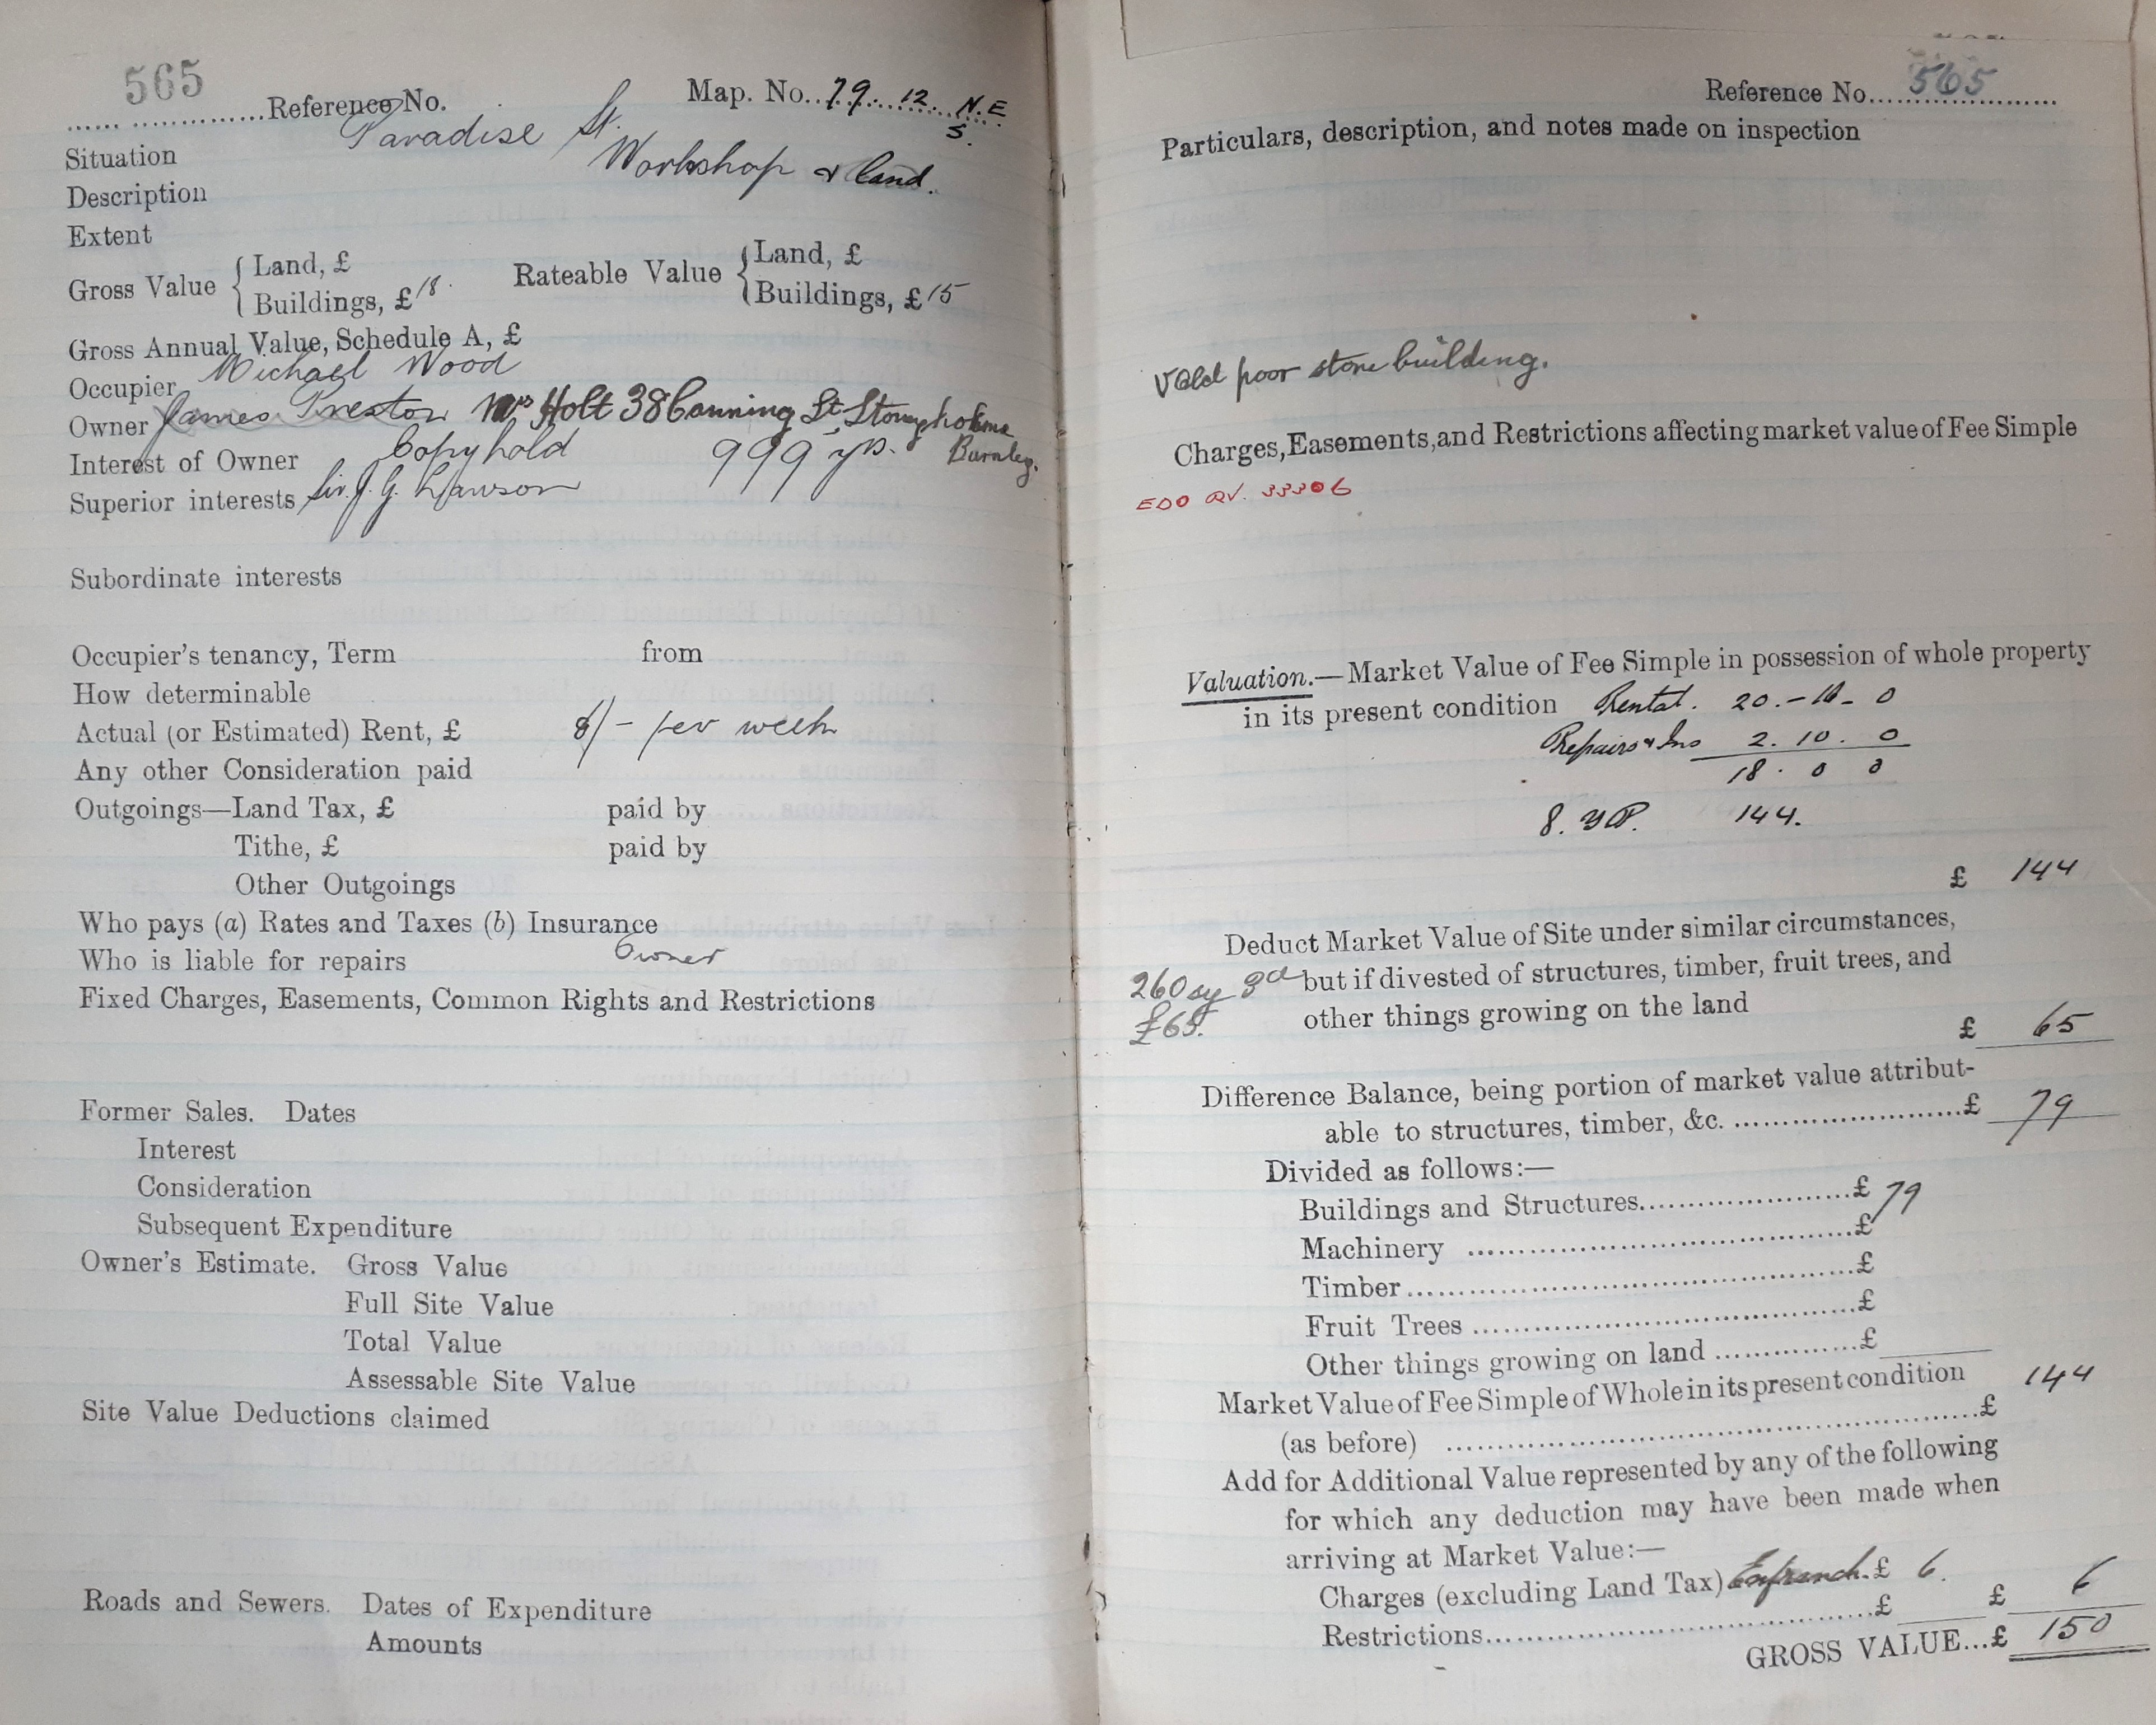 565
Reference No.
Map. No. 79. 12. N.E
S.
Situation Paradise St.
Description Workshop & land.
Extent
Gross Value { Land, £
Buildings, £ 18.
Rateable Value { Land, £
Buildings, £ 15
Gross Annual Value, Schedule A, £
Occupier Michael Wood
Owner James Preston Mrs Holt 38 Canning St. Stoneyholme
Burnley.
Interest of Owner Copyhold 999 yrs.
Superior interests Sir J. G. Lawson
Subordinate interests
Occupier's tenancy, Term from
How determinable
Actual (or Estimated) Rent, £ 8/- per week
Any other Consideration paid
Outgoings—Land Tax, £ paid by
Tithe, £ paid by
Other Outgoings
Who pays (a) Rates and Taxes (b) Insurance
Who is liable for repairs Owner
Fixed Charges, Easements, Common Rights and Restrictions
Former Sales. Dates
Interest
Consideration
Subsequent Expenditure
Owner's Estimate. Gross Value
Full Site Value
Total Value
Assessable Site Value
Site Value Deductions claimed
Roads and Sewers. Dates of Expenditure
Amounts
Reference No. 565
Particulars, description, and notes made on inspection
Old poor stone building.
Charges, Easements, and Restrictions affecting market value of Fee Simple
EDO RV. 33306
Valuation.—Market Value of Fee Simple in possession of whole property
in its present condition Rental. 20.-16-0
Repairs & Ins 2. 10. 0
18. 0 0
8. YP. 144.
£ 144
Deduct Market Value of Site under similar circumstances,
260 sy 3d but if divested of structures, timber, fruit trees, and
£65. other things growing on the land
£ 65
Difference Balance, being portion of market value attribut-
able to structures, timber, &c. £ 79
Divided as follows:—
Buildings and Structures £ 79
Machinery £
Timber £
Fruit Trees £
Other things growing on land £
Market Value of Fee Simple of Whole in its present condition
(as before) £ 144
Add for Additional Value represented by any of the following
for which any deduction may have been made when
arriving at Market Value:—
Charges (excluding Land Tax) Enfranch. £ 6.
Restrictions £ £ 6
GROSS VALUE...£ 150